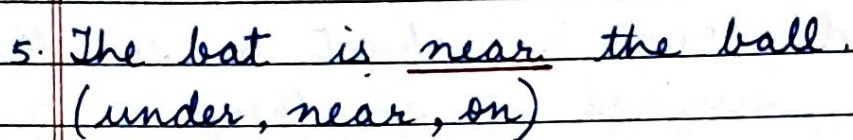 5. The bat is near the ball.
(under, near, on)